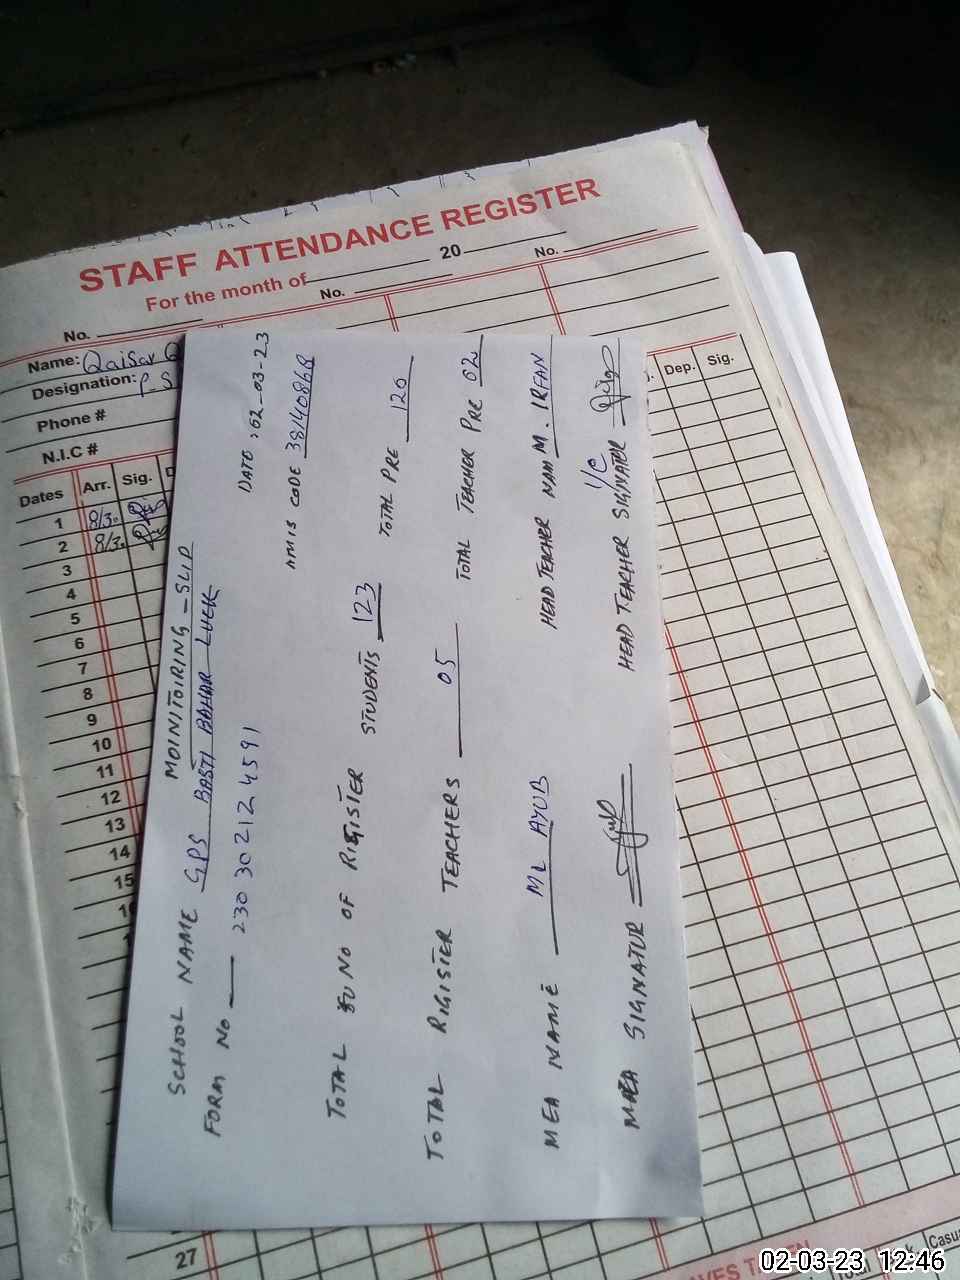 STAFF ATTENDANCE REGISTER
For the month of 20
No. No. No.
Name: Qaisar
Designation: P.S
Phone #
N.I.C #
Dates Arr. Sig. Dep. Sig.
1 8/30
2 8/30
3
4
5
6
7
8
9
10
11
12
13
14
15
27
MOINITOIRING - SLIP
SCHOOL NAME GPS BASTI BAHAR LUEK DATO: 02-03-23
FORM No 230302124591 MMIS CODE 38140868
TOTAL NO OF RIGISIER STUDENTS 123 TOTAL PRE 120
TOTAL RIGISIER TEACHERS 05 TOTAL TEACHER PRE 02
MEA NAME ML AYUB HEAD TEACHER NAM M. IRFAN
I/C
MEA SIGNATUR HEAD TEACHER SIGNATUR
Casua
02-03-23 12:46